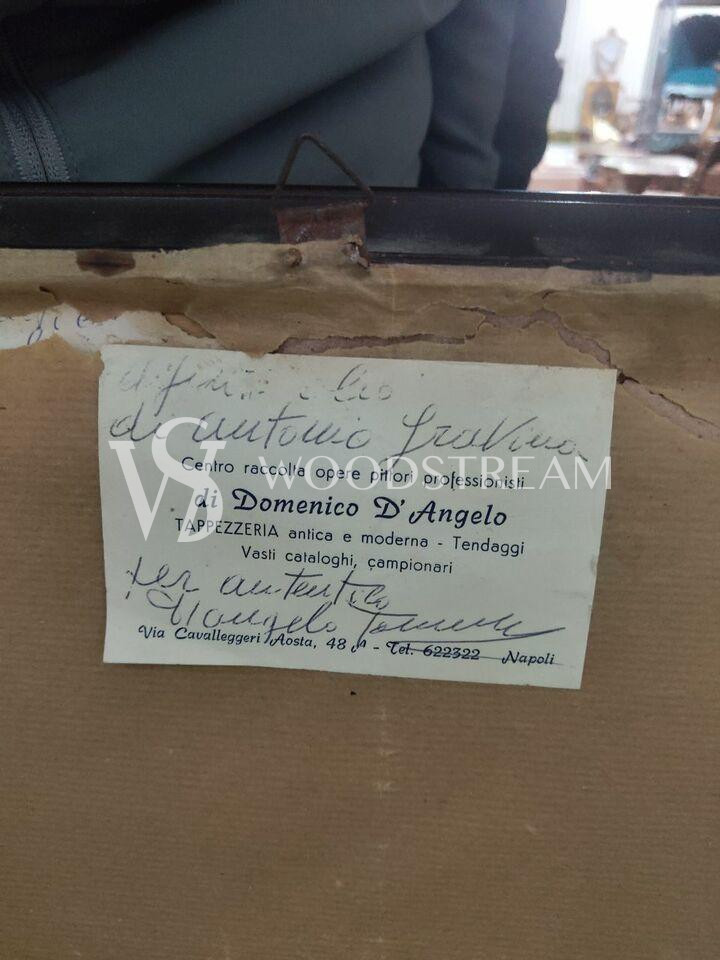 olio
di Antonio Gravina
Centro raccolta opere pittori professionisti
di Domenico D'Angelo
TAPPEZZERIA antica e moderna - Tendaggi
Vasti cataloghi, campionari
per autentica
D'Angelo
Via Cavalleggeri Aosta, 48 - Tel. 622322 Napoli
VS WOODSTREAM